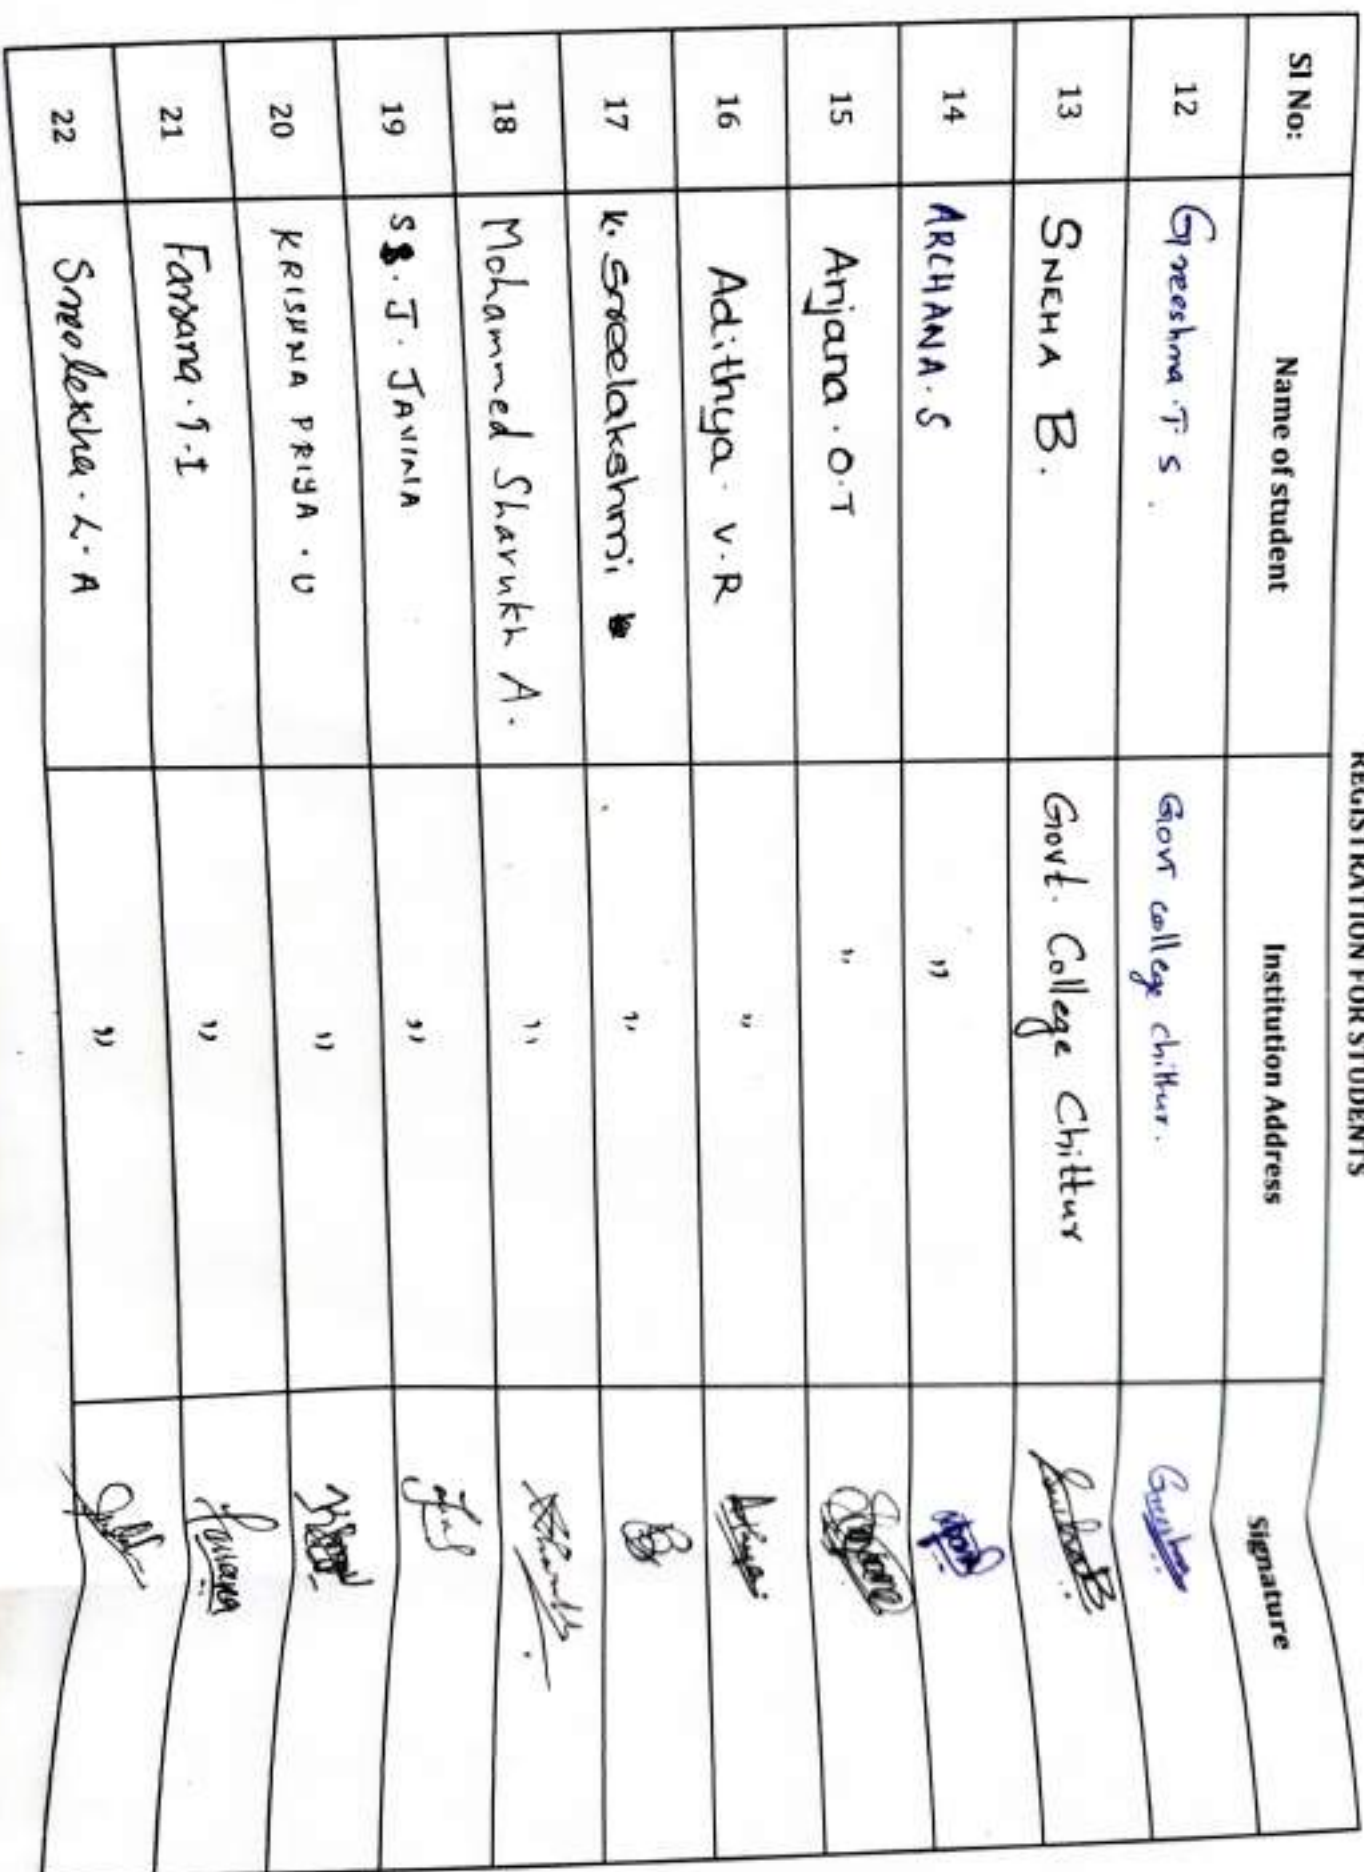 REGISTRATION FOR STUDENTS
Sl No: Name of student Institution Address Signature
12 Greeshma. T S. Govt college chittur.
13 SNEHA B. Govt. College Chittur
14 ARCHANA. S ,,
15 Anjana. O.T ,,
16 Adithya. V.R ,,
17 K. Sreelakshmi ,,
18 Mohammed Sharukh A. ,,
19 S. J. JAVINIA ,,
20 KRISHNA PRIYA. U ,,
21 Farsana. ,,
22 Sreelekha. L. A ,,